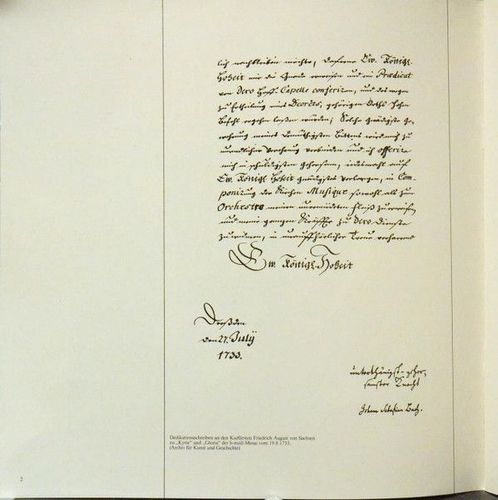 lich nachbleiben möchte, daferne Ew. Königl.
Hoheit mir die Gnade erweisen und ein Prædicat
von Dero Hoff-Capelle conferiren, und deswegen
zu Ertheilung eines Decretes, gehörigen Orths hohen
Befehl ergehen lassen würden; Solche gnädigste Ge-
wehrung meines demüthigsten Bittens wird mich zu
unendlicher Verehrung verbinden und ich offerire
mich in schuldigsten Gehorsam, iedesmahl auf
Ew. Königl. Hoheit gnädigstes Verlangen, in Com-
ponirung der Kirchen Musique sowohl als zum
Orchestre meinen unermüdeten Fleiß zu erweisen,
und meine ganzen Kräffte zu Dero Dienste
zu widmen, in unaufhörlicher Treue verharrend
Ew. Königl. Hoheit
Dreßden
den 27. July
1733.
unterthänigst-gehor-
samster Knecht
Johann Sebastian Bach.
Dedikationsschreiben an den Kurfürsten Friedrich August von Sachsen
zu „Kyrie“ und „Gloria“ der h-moll-Messe vom 19.8.1733.
(Archiv für Kunst und Geschichte)
2